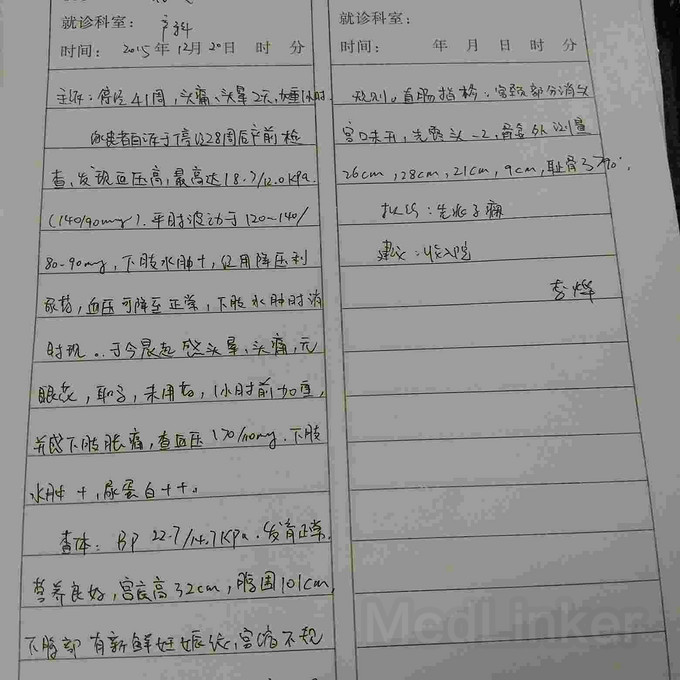 就诊科室： 产科
时间： 2015年12月20日 时 分
主诉：停经41周，头痛、头晕2天，加重1小时
患者自诉于停经28周后产前检
查，发现血压高，最高达18.7/12.0KPa.
(140/90mmHg). 平时波动于120-140/
80-90mmHg，下肢水肿+，服用降压利
尿药，血压可降至正常，下肢水肿时消
时现。于今晨起感头晕、头痛，无
眼花，耳鸣，未用药，1小时前加重，
并感下肢胀痛，查血压170/110mmHg. 下肢
水肿+，尿蛋白++。
查体：BP 22.7/14.7KPa. 发育正常.
营养良好，宫底高32cm，腹围101cm，
下腹部有新鲜妊娠纹，宫缩不规
就诊科室：
时间： 年 月 日 时 分
规则。直肠指检：宫颈部分消失
宫口未开，先露头-2，骨盆外测量
26cm，28cm，21cm，9cm，耻骨弓>90°.
拟诊：先兆子痫
建议：收入院
李烨
MedLinker